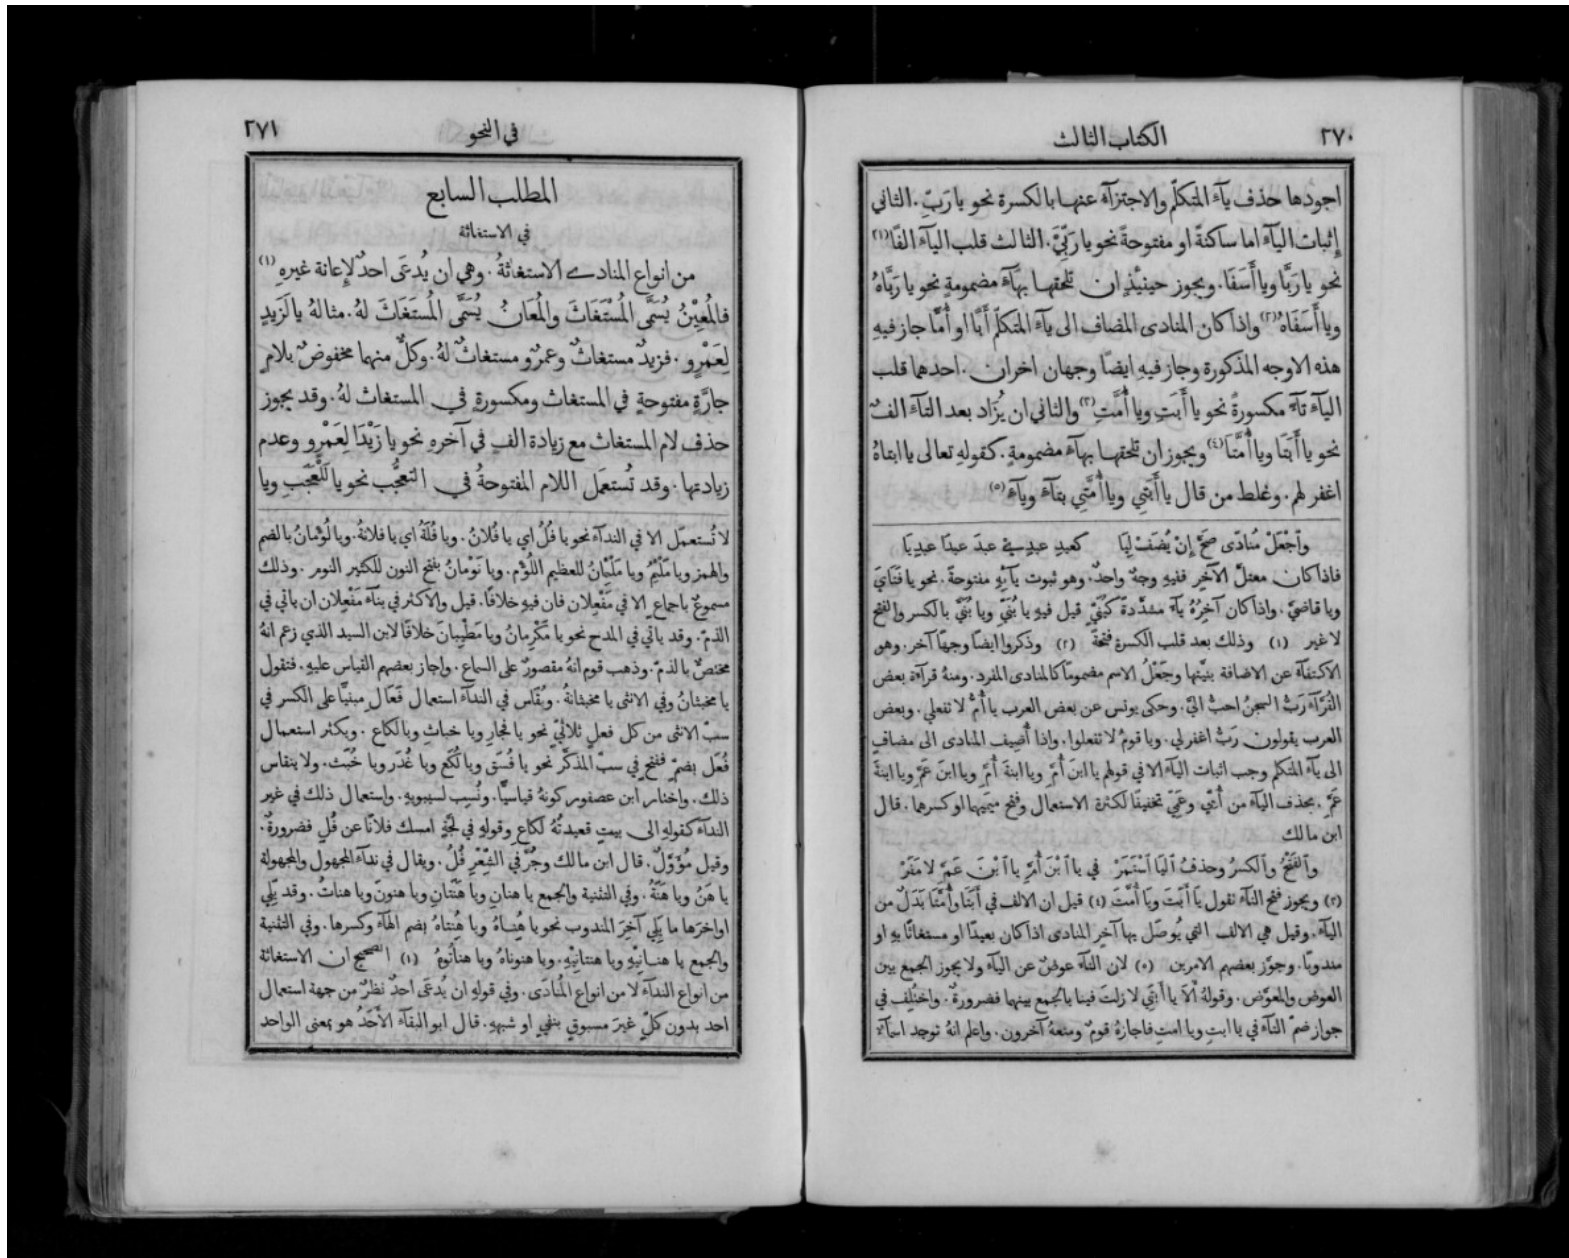 ٢٧٠
الكتاب الثالث
اجودها حذف يآء المتكلّم والاجتزآء عنها بالكسرة نحو يا رَبِّ. الثاني
إثبات اليآء اما ساكنةً او مفتوحةً نحو يا رَبِّيَ. الثالث قلب اليآء الفًا (١)
نحو يا رَبَّا ويا أَسَفَا. ويجوز حينئذٍ ان تلحقها بهآءٍ مضمومةٍ نحو يا رَبَّاهُ
ويا أَسَفَاهُ (٢) واذا كان المنادى المضاف الى يآء المتكلّم أَبًا او أُمًّا جاز فيهِ
هذه الاوجه المذكورة وجاز فيهِ ايضًا وجهان اخران. احدهما قلب
اليآء تآءً مكسورةً نحو يا أَبَتِ ويا أُمَّتِ (٣) والثاني ان يُزَاد بعد التآء الفٌ
نحو يا أَبَتَا ويا أُمَّتَا (٤) ويجوز ان تلحقها بهآءٍ مضمومةٍ. كقولهِ تعالى يا ابتاهُ
اغفر لهم. وغلط من قال يا أَبَتِي ويا أُمَّتِي بتآءٍ ويآءٍ (٥)
وَاجْعَلْ مُنادًى صَحَّ إِنْ يُضَفْ لِيَا كعبدِ عبدِي عبدَ عبدَا عبدِيَا
فاذا كان معتلّ الآخِرِ ففيهِ وجهٌ واحدٌ. وهو ثبوت يآئِهِ مفتوحةً. نحو يا فَتَايَ
ويا قاضيَّ. واذا كان آخِرُهُ يآءً مشدَّدةً كبُنَيٍّ قيل فيهِ يا بُنَيِّ ويا بُنَيَّ بالكسر والفتح
لا غير (١) وذلك بعد قلب الكسرة فتحةً (٢) وذكروا ايضًا وجهًا آخر. وهو
الاكتفآء عن الاضافة بنيَّتها وجَعْلُ الاسم مضمومًا كالمنادى المفرد. ومنهُ قرآءة بعض
القُرَّآء رَبُّ السجنُ احبُّ اليَّ. وحكى يونس عن بعض العرب يا أُمُّ لا تفعلي. وبعض
العرب يقولون رَبُّ اغفر لي. ويا قومُ لا تفعلوا. واذا أُضِيف المنادى الى مضافٍ
الى يآء المتكلم وجب اثبات اليآء الا في قولهم يا ابنَ أُمِّ ويا ابنةَ أُمِّ ويا ابنَ عَمِّ ويا ابنةَ
عَمِّ. بحذف اليآء من أُمِّي وعَمِّي تخفيفًا لكثرة الاستعمال وفتح ميميهما او كسرهما. قال
ابن مالك
وَالفَتْحُ وَالكسرُ وحذفُ اليَا اسْتَمَرّْ في يا ابْنَ أُمَّ يا ابْنَ عَمَّ لا مَفَرّْ
(٣) ويجوز فتح التآء تقول يَا أَبَتَ ويَا أُمَّتَ (٤) قيل ان الالف في أَبَتَا وأُمَّتَا بَدَلٌ من
اليآء. وقيل هي الالف التي يُوصَل بها آخر المنادى اذا كان بعيدًا او مستغاثًا بهِ او
مندوبًا. وجوَّز بعضهم الامرين (٥) لان التآء عوضٌ عن اليآء ولا يجوز الجمع بين
العوض والمعوَّض. وقولهُ أَلاَ يا أَبَتِي لا زلتَ فينا بالجمع بينهما فضرورةٌ. واختُلِف في
جواز ضمّ التآء في يا ابتِ ويا امتِ فاجازهُ قومٌ ومنعهُ آخرون. واعلم انهُ توجد اسمآء
في النحو
٢٧١
المطلب السابع
في الاستغاثة
من انواع المنادى الاستغاثةُ. وهي ان يُدعَى احدٌ لإعانة غيرهِ (١)
فالمُعِيْنُ يُسَمَّى المُسْتَغَاثَ والمُعَانُ يُسَمَّى المُستَغَاثَ لهُ. مثالهُ يا لَزَيدٍ
لِعَمْرٍو. فزيدٌ مستغاثٌ وعمرٌو مستغاثٌ لهُ. وكلٌّ منهما مخفوضٌ بلامٍ
جارَّةٍ مفتوحةٍ في المستغاث ومكسورةٍ في المستغاث لهُ. وقد يجوز
حذف لام المستغاث مع زيادة الفٍ في آخرهِ نحو يا زَيْدَا لِعَمْرٍو وعدم
زيادتها. وقد تُستعمَل اللام المفتوحةُ في التعجُّب نحو يا لَلْعَجَبِ ويا
لا تُستعمَل الا في الندآء نحو يا فُلُ اي يا فُلانُ. ويا فُلَةُ اي يا فلانةُ. ويا لُؤْمانُ بالضم
والهمز ويا مَلْأَمُ ويا مَلْأَمَانُ للعظيم اللُؤْم. ويا نَوْمَانُ بفتح النون للكثير النوم. وذلك
مسموعٌ باجماعٍ الا في مَفْعِلان فان فيهِ خلافًا. قيل والاكثر في بنآء مَفْعِلان ان ياتي في
الذمّ. وقد ياتي في المدح نحو يا مَكْرِمانُ ويا مَطْيِبانَ خلافًا لابن السيد الذي زعم انهُ
مختصٌّ بالذمّ. وذهب قوم انهُ مقصورٌ على السماع. واجاز بعضهم القياس عليهِ. فتقول
يا مخبثانُ وفي الانثى يا مخبثانةُ. ويُقَاس في الندآء استعمال فَعَالِ مبنيًّا على الكسر في
سبّ الانثى من كل فعلٍ ثلاثيٍّ نحو يا فجارِ ويا خباثِ ويا لكاع. ويكثر استعمال
فُعَل بضمٍّ ففتحٍ في سبّ المذكَّر نحو يا فُسَق ويا لُكَع ويا غُدَر ويا خُبَث. ولا ينقاس
ذلك. واختار ابن عصفور كونهُ قياسيًّا. ونُسِب لسيبويهِ. واستعمال ذلك في غير
الندآء كقولهِ الى بيتٍ قعيدتُهُ لكاعِ وقولهِ في لجّةٍ امسك فلانًا عن فُلِ فضرورةٌ.
وقيل مُؤَوَّلٌ. قال ابن مالك وجُرَّ في الشِّعْرِ فُلُ. ويقال في ندآء المجهول والمجهولة
يا هَنُ ويا هَنَةُ. وفي التثنية والجمع يا هنانِ ويا هَنَتَانِ ويا هنونَ ويا هناتُ. وقد يَلِي
اواخرَها ما يَلِي آخِرَ المندوب نحو يا هَنَاهُ ويا هَنتاهُ بضم الهآء وكسرها. وفي التثنية
والجمع يا هنانيهِ ويا هنتانِيْهِ. ويا هنوناهُ ويا هناتُوهُ (١) الصحيح ان الاستغاثة
من انواع الندآء لا من انواع المُنَادَى. وفي قولهِ ان يُدعَى احدٌ نظرٌ من جهة استعمال
احد بدون كلٍّ غيرَ مسبوقٍ بنفيٍ او شبههِ. قال ابو البقآء الأَحَدُ هو بمعنى الواحد